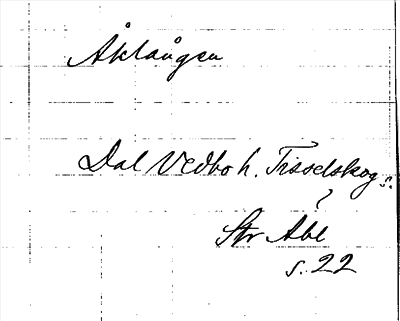 Åklången
Dal Vedbo h. Tisselskogs.
?
Str Abl
s. 22